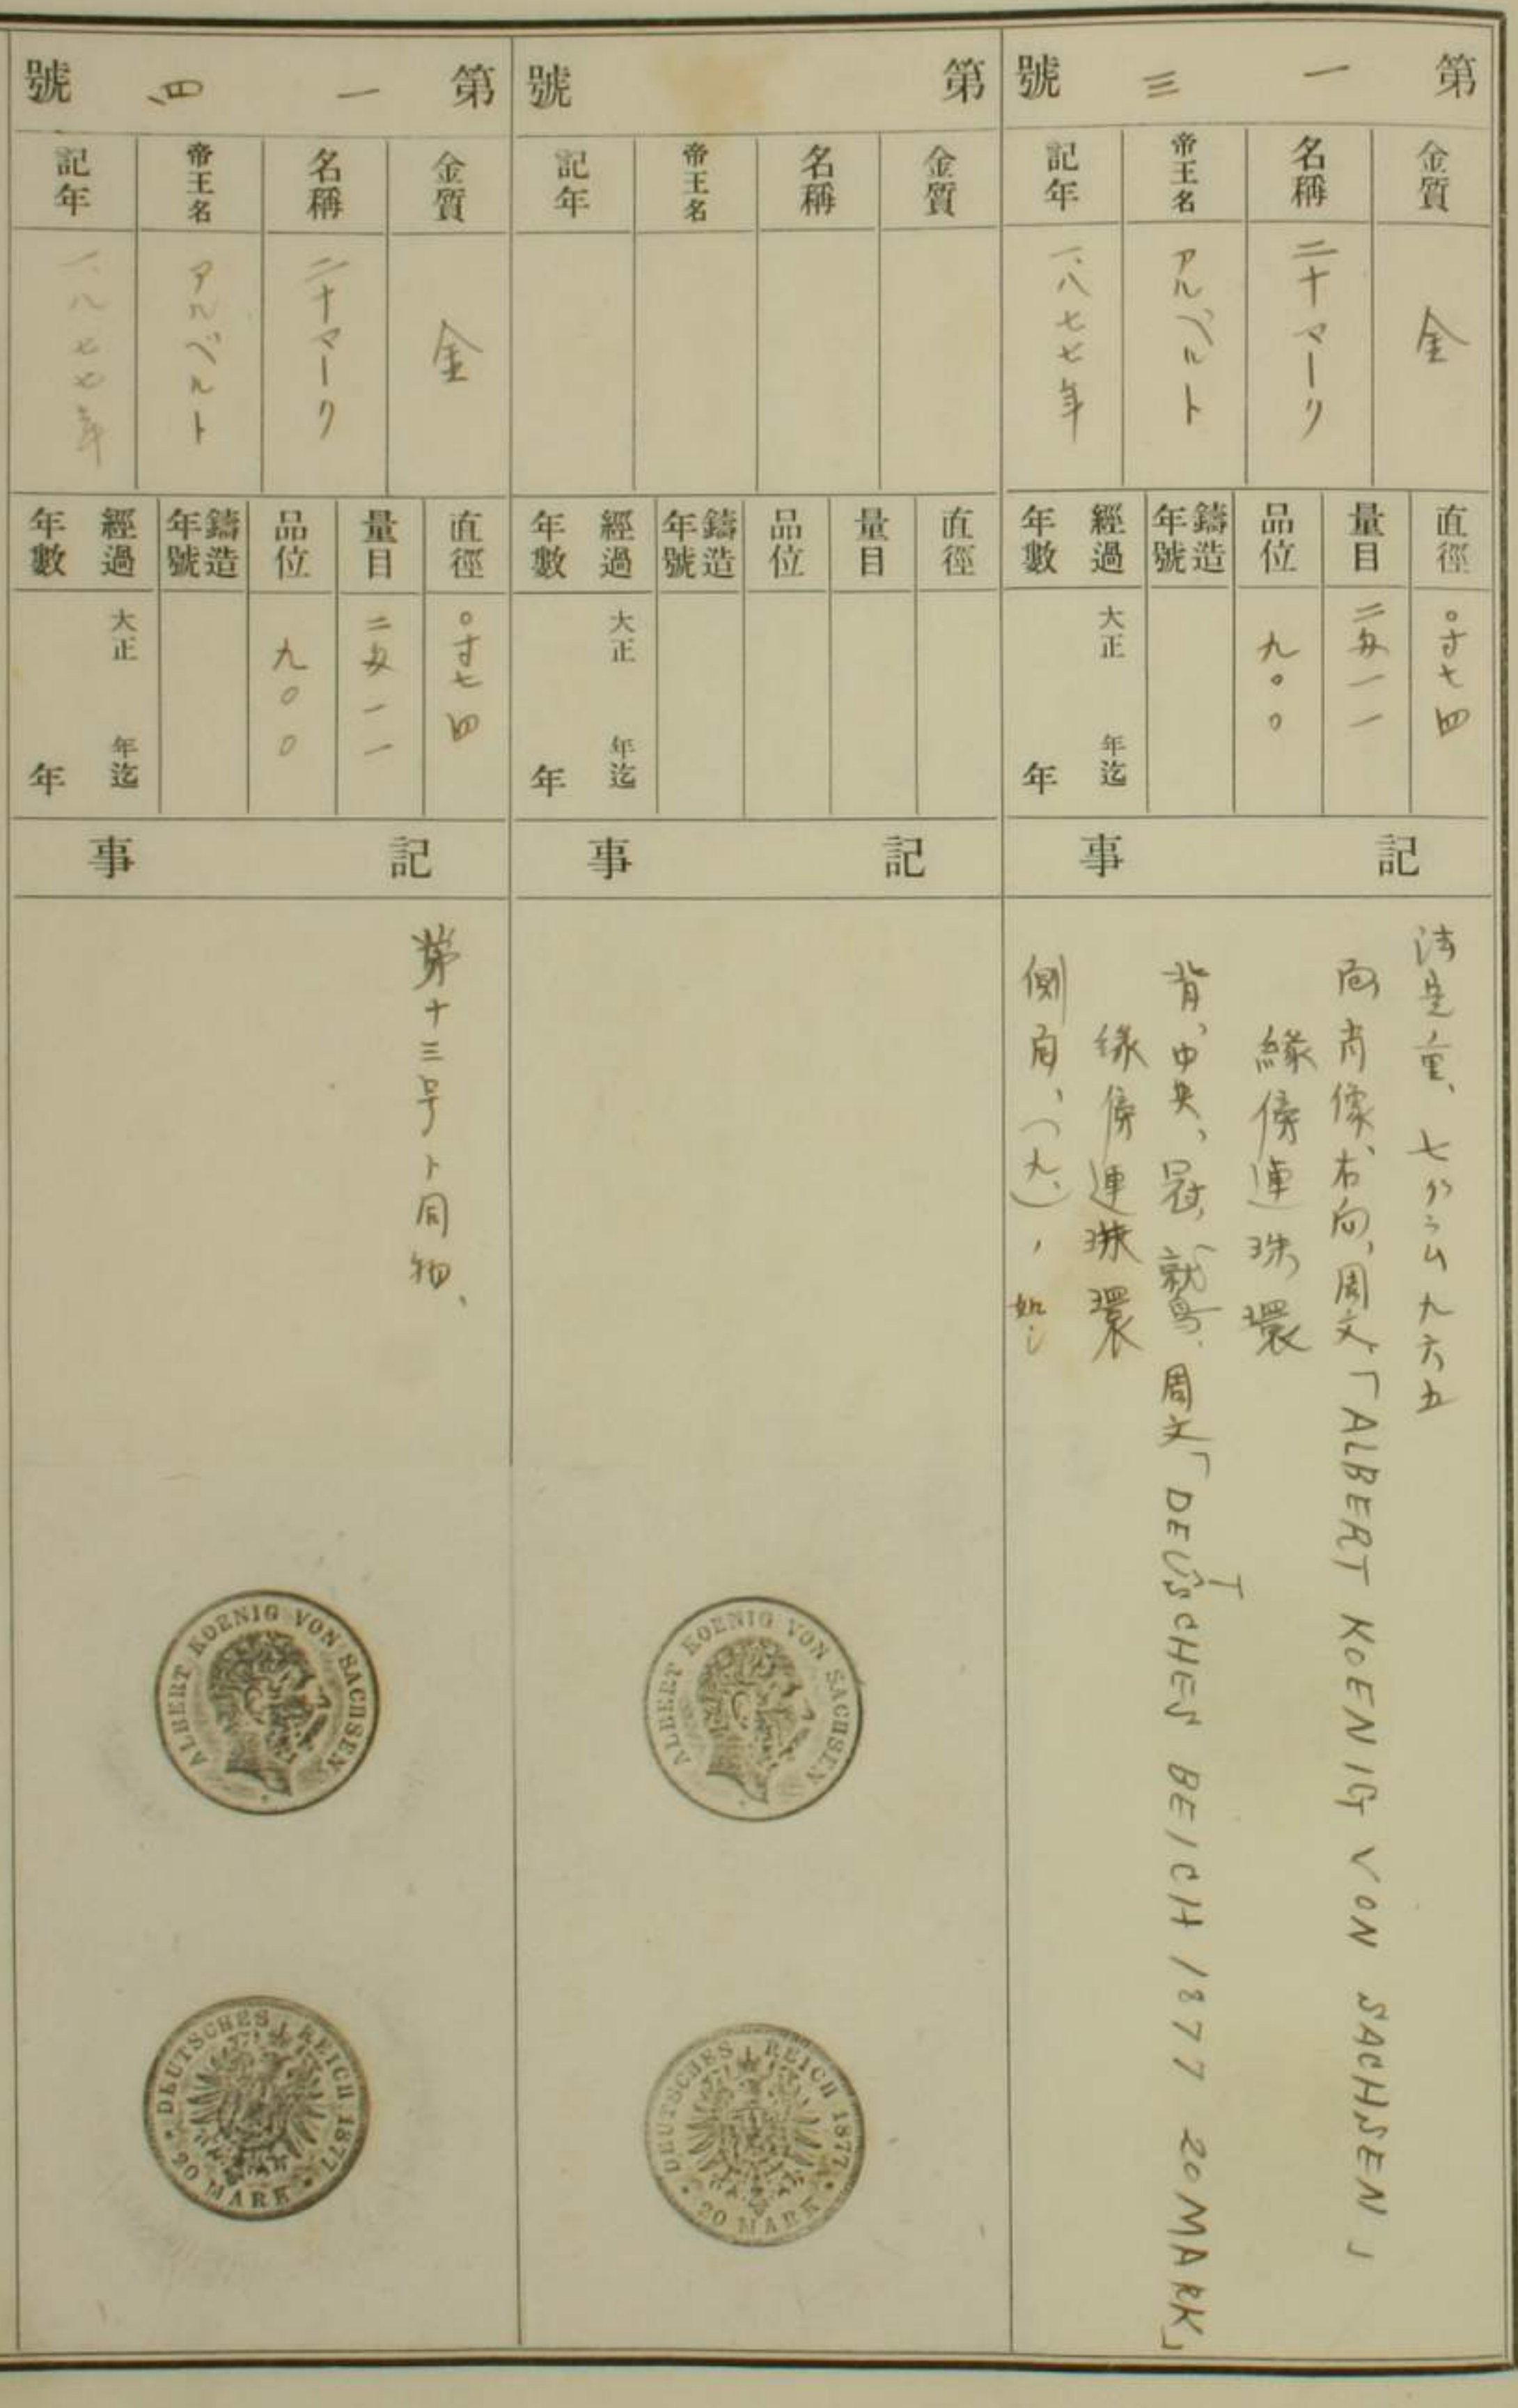 第一三號
金質
金
名稱
二十マーク
帝王名
アルベルト
記年
一、八七七年
直徑
〇寸七四
量目
二匁一一
品位
九〇〇
鑄造年號
經過年數
大正 年迄 年
記事
法定量、七グラム九六五
面、肖像、右向、周文、「ALBERT KOENIG VON SACHSEN」
緣傍連珠環
背、中央、冠、鷲、周文「DEUTSCHES BEICH 1877 20 MARK」
緣傍連珠環
側面、(九、)ノ如シ
第 號
金質
名稱
帝王名
記年
直徑
量目
品位
鑄造年號
經過年數
大正 年迄 年
記事
ALBERT KOENIG VON SACHSEN
DEUTSCHES REICH 1877
20 MARK
第一四號
金質
金
名稱
二十マーク
帝王名
アルベルト
記年
一、八七七年
直徑
〇寸七四
量目
二匁一一
品位
九〇〇
鑄造年號
經過年數
大正 年迄 年
記事
第十三号ト同物、
ALBERT KOENIG VON SACHSEN
DEUTSCHES REICH 1877
20 MARK